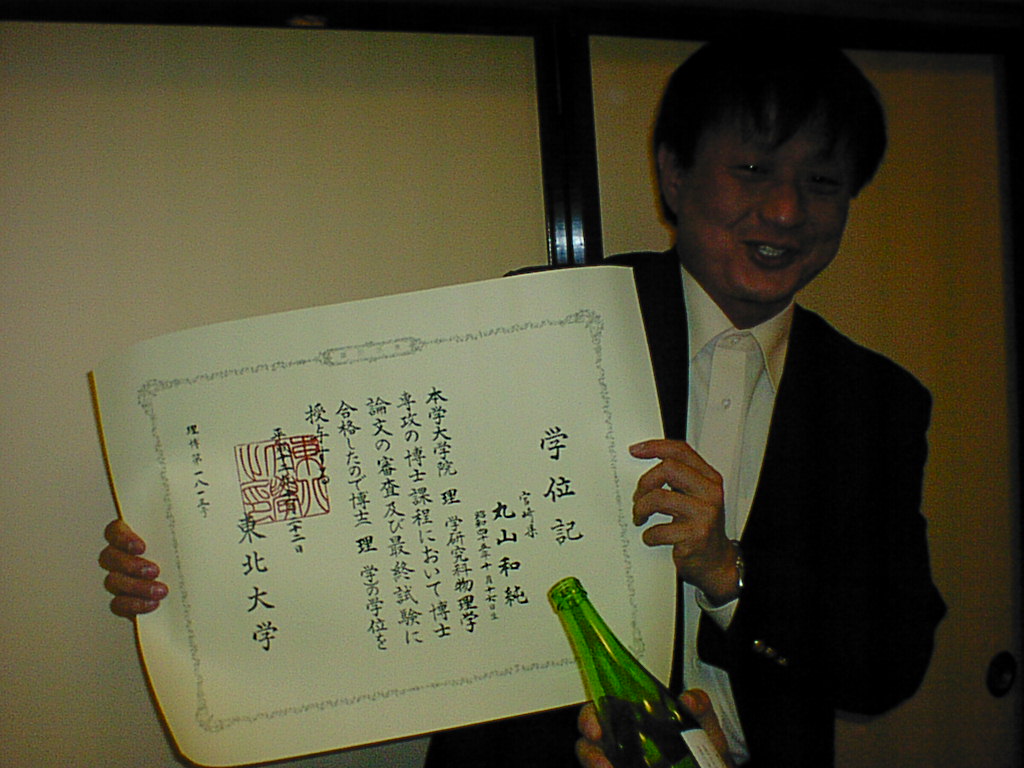 学位記
宮崎県
丸山和純
昭和四十五年十月十七日生
本学大学院理学研究科物理学
専攻の博士課程において博士
論文の審査及び最終試験に
合格したので博士理学の学位を
授与する
東北大学